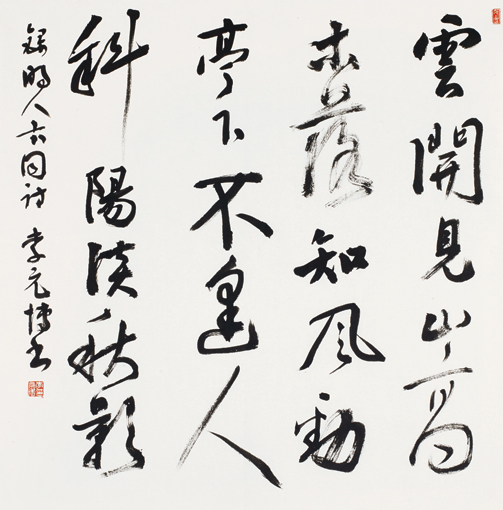 雲開見山高
木落知风勁
亭下不逢人
斜陽淡秋影
錄明人石田詩 李元博書